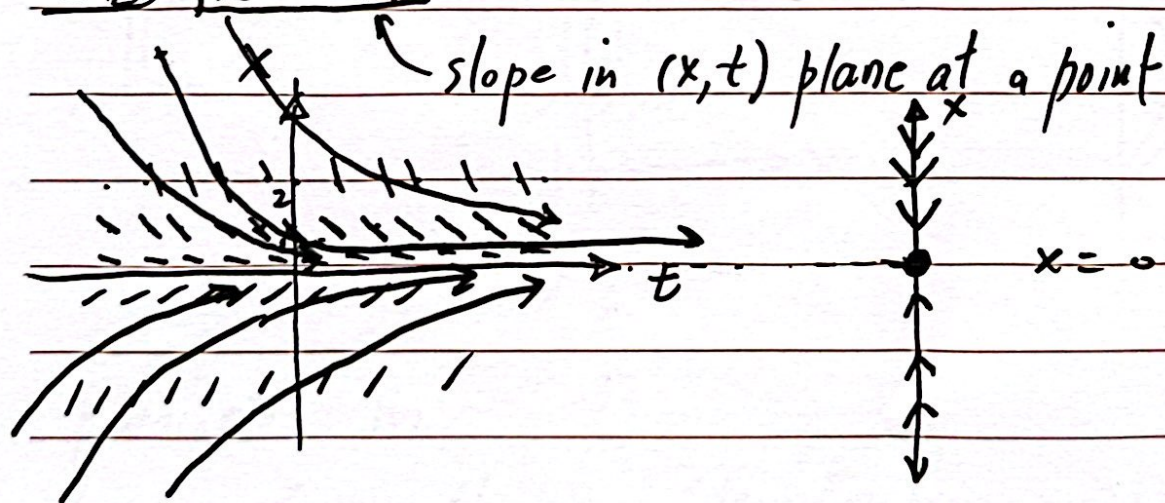 slope in (x,t) plane at a point
x
x
2
t
x = 0